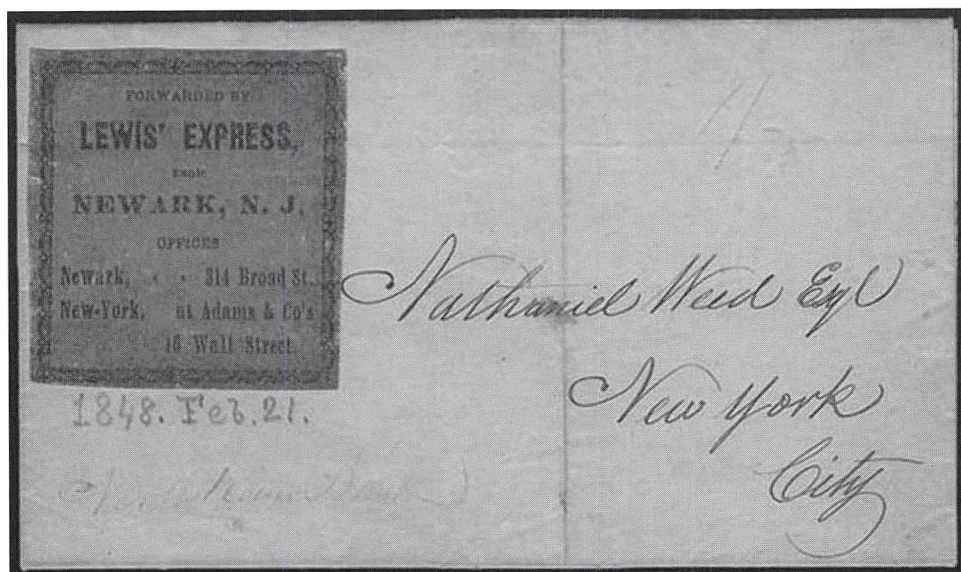 FORWARDED BY
LEWIS' EXPRESS,
FROM
NEWARK, N. J.
OFFICES
Newark, " " 314 Broad St.
New-York, at Adams & Co's
16 Wall Street.
1848. Feb. 21.
Nathaniel Weed Esqr
New York
City